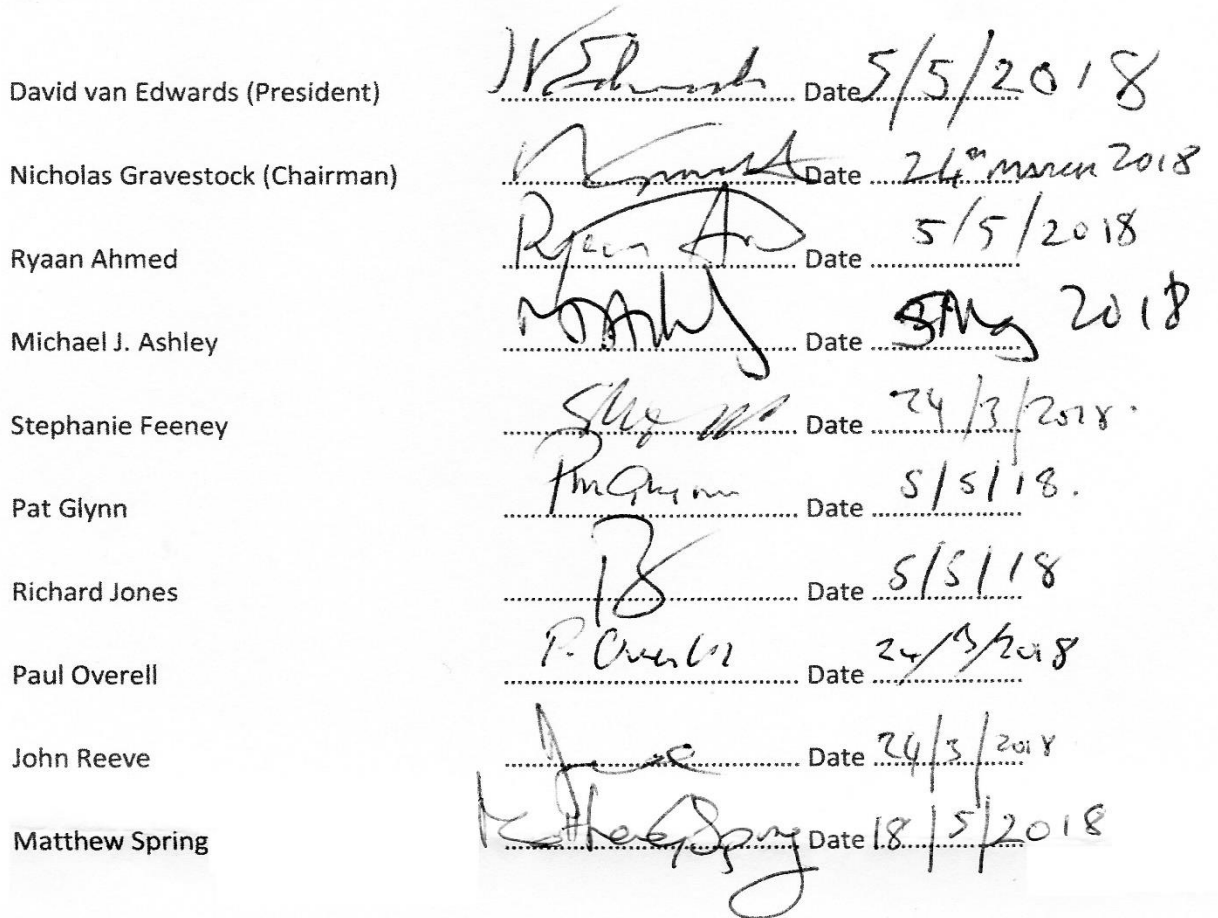 David van Edwards (President) Date 5/5/2018
Nicholas Gravestock (Chairman) Date 24th March 2018
Ryaan Ahmed Ryaan Date 5/5/2018
Michael J. Ashley MJAshley Date 2018
Stephanie Feeney Date 24/3/2018.
Pat Glynn Date 5/5/18.
Richard Jones Date 5/5/18
Paul Overell P. Overell Date 24/3/2018
John Reeve Date 24/3/2018
Matthew Spring Matthew Spring Date 18/5/2018